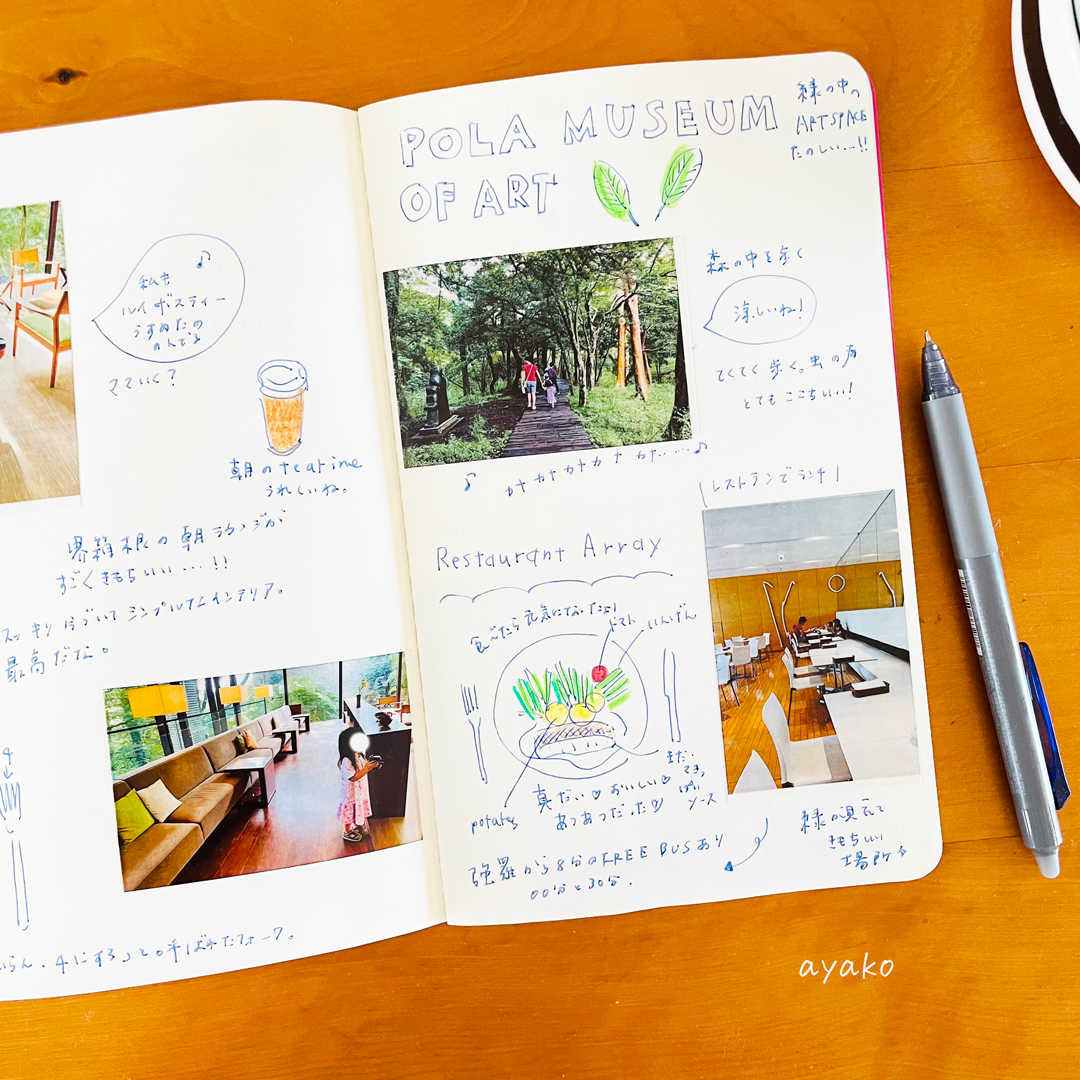 私も
ルイボスティー
うすめたの
のんでよ
ママいく?
朝のteatime
うれしいね。
界箱根の朝ラウンジが
すごくきもちいい…!!
スッキリ片づいてシンプルなインテリア。
最高だな。
4にする」と。呼ばれたフォーク。
POLA MUSEUM
OF ART
緑の中の
ART SPACE
たのしい…!!
森の中を歩く
涼しいね!
てくてく歩く。虫の声
とてもここちいい!
カナカナカナカナカナ……
レストランでランチ
Restaurant Array
食べたら元気になったよ!
トマト
いんげん
potates
真だい♡おいしい♡
あつあつだった♡
ソース
強羅から8分のFREE BUSあり
00分と30分.
緑の見えて
きもちいい
場所
ayako